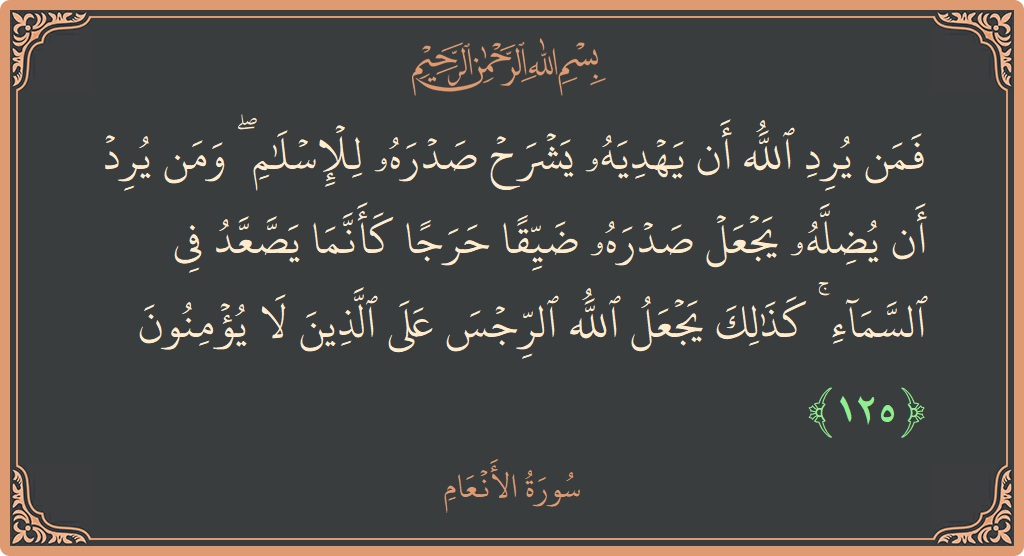 بِسْمِ اللَّهِ الرَّحْمَٰنِ الرَّحِيمِ
فَمَن يُرِدِ ٱللَّهُ أَن يَهْدِيَهُۥ يَشْرَحْ صَدْرَهُۥ لِلْإِسْلَٰمِ ۖ وَمَن يُرِدْ
أَن يُضِلَّهُۥ يَجْعَلْ صَدْرَهُۥ ضَيِّقًا حَرَجًا كَأَنَّمَا يَصَّعَّدُ فِى
ٱلسَّمَآءِ ۚ كَذَٰلِكَ يَجْعَلُ ٱللَّهُ ٱلرِّجْسَ عَلَى ٱلَّذِينَ لَا يُؤْمِنُونَ
﴿١٢٥﴾
سُورَةُ الأَنْعَامِ